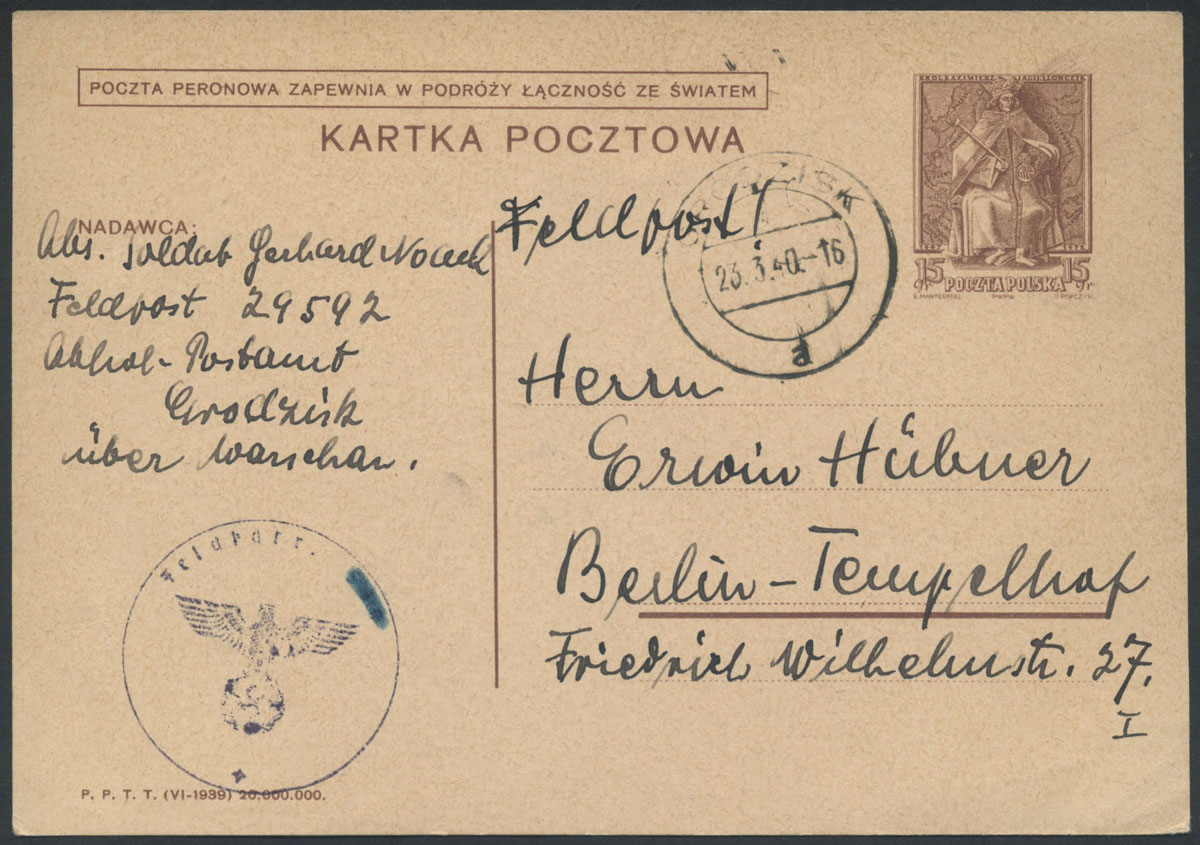 POCZTA PERONOWA ZAPEWNIA W PODRÓŻY ŁĄCZNOŚĆ ZE ŚWIATEM
KARTKA POCZTOWA
KRÓL KAZIMIERZ JAGIELLOŃCZYK
15 POCZTA POLSKA 15
gr gr
GRODZISK
23.3.40.-16
a
Feldpost!
NADAWCA:
Abs. Soldat Gerhard Noack
Feldpost 29592
Abhol-Postamt
Grodzisk
über Warschau.
Herrn
Erwin Hübner
Berlin-Tempelhof
Friedrich Wilhelmstr. 27.
I
P. P. T. T. (VI-1939) 20.000.000.